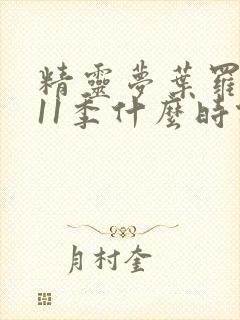 精靈夢葉羅
11季什麼時
月村奎